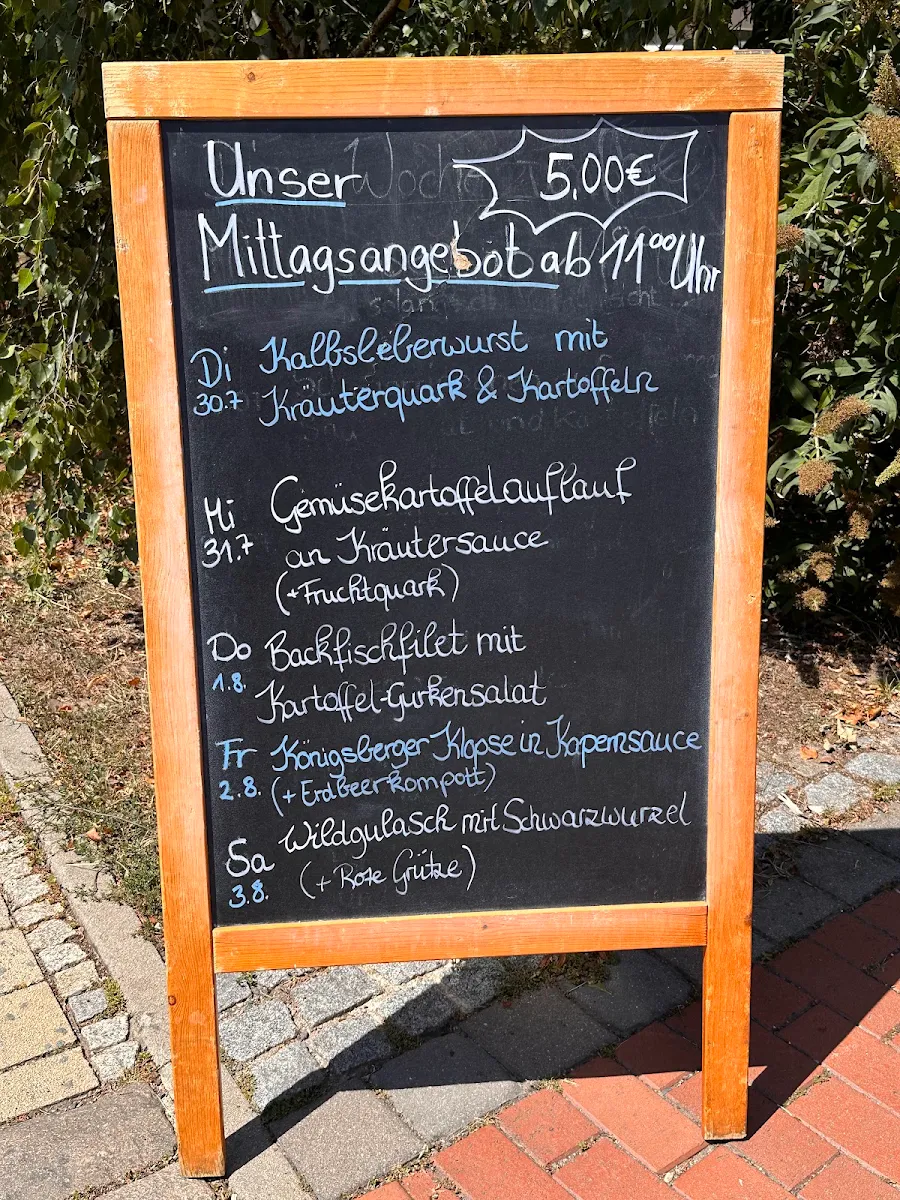 Unser Woche 5,00€
Mittagsangebot ab 11⁰⁰ Uhr
Di Kalbsleberwurst mit
30.7 Kräuterquark & Kartoffeln
Mi Gemüsekartoffelauflauf
31.7 an Kräutersauce
(+Fruchtquark)
Do Backfischfilet mit
1.8. Kartoffel-Gurkensalat
Fr Königsberger Klopse in Kapernsauce
2.8. (+ Erdbeerkompott)
Sa Wildgulasch mit Schwarzwurzel
3.8. (+ Rote Grütze)